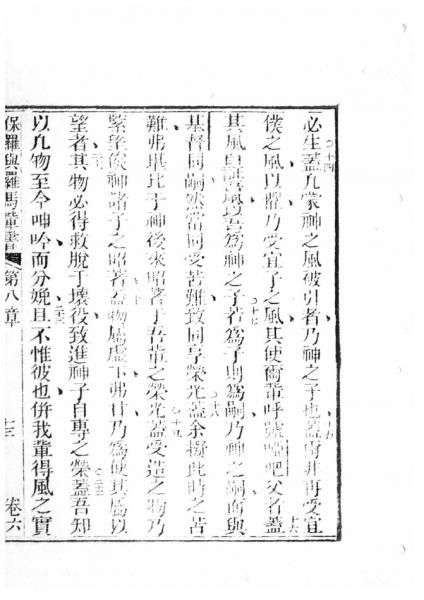 必生蓋凡蒙神之風被引者乃神之子也蓋爾非再受宜
僕之風以懼乃受宜子之風其使爾輩呼號唱吧父者蓋
其風自証吾風以吾為神之子若為子則為嗣乃神之嗣而與
基督同嗣然當同受苦難致同享榮光蓋余擬此時之苦
難弗堪比于神後來昭著于吾輩之榮光蓋受造之物乃
緊望俟神諸子之昭著蓋物屬虛下弗甘乃為使其屬以
望者其物必得救脫于壞役致進神子自專之榮蓋吾知
以凡物至今呻吟而分娩且不惟彼也併我輩得風之實
保羅與羅馬輩書 第八章 七三 卷六
十四
十五
十六
十七
十八
十九